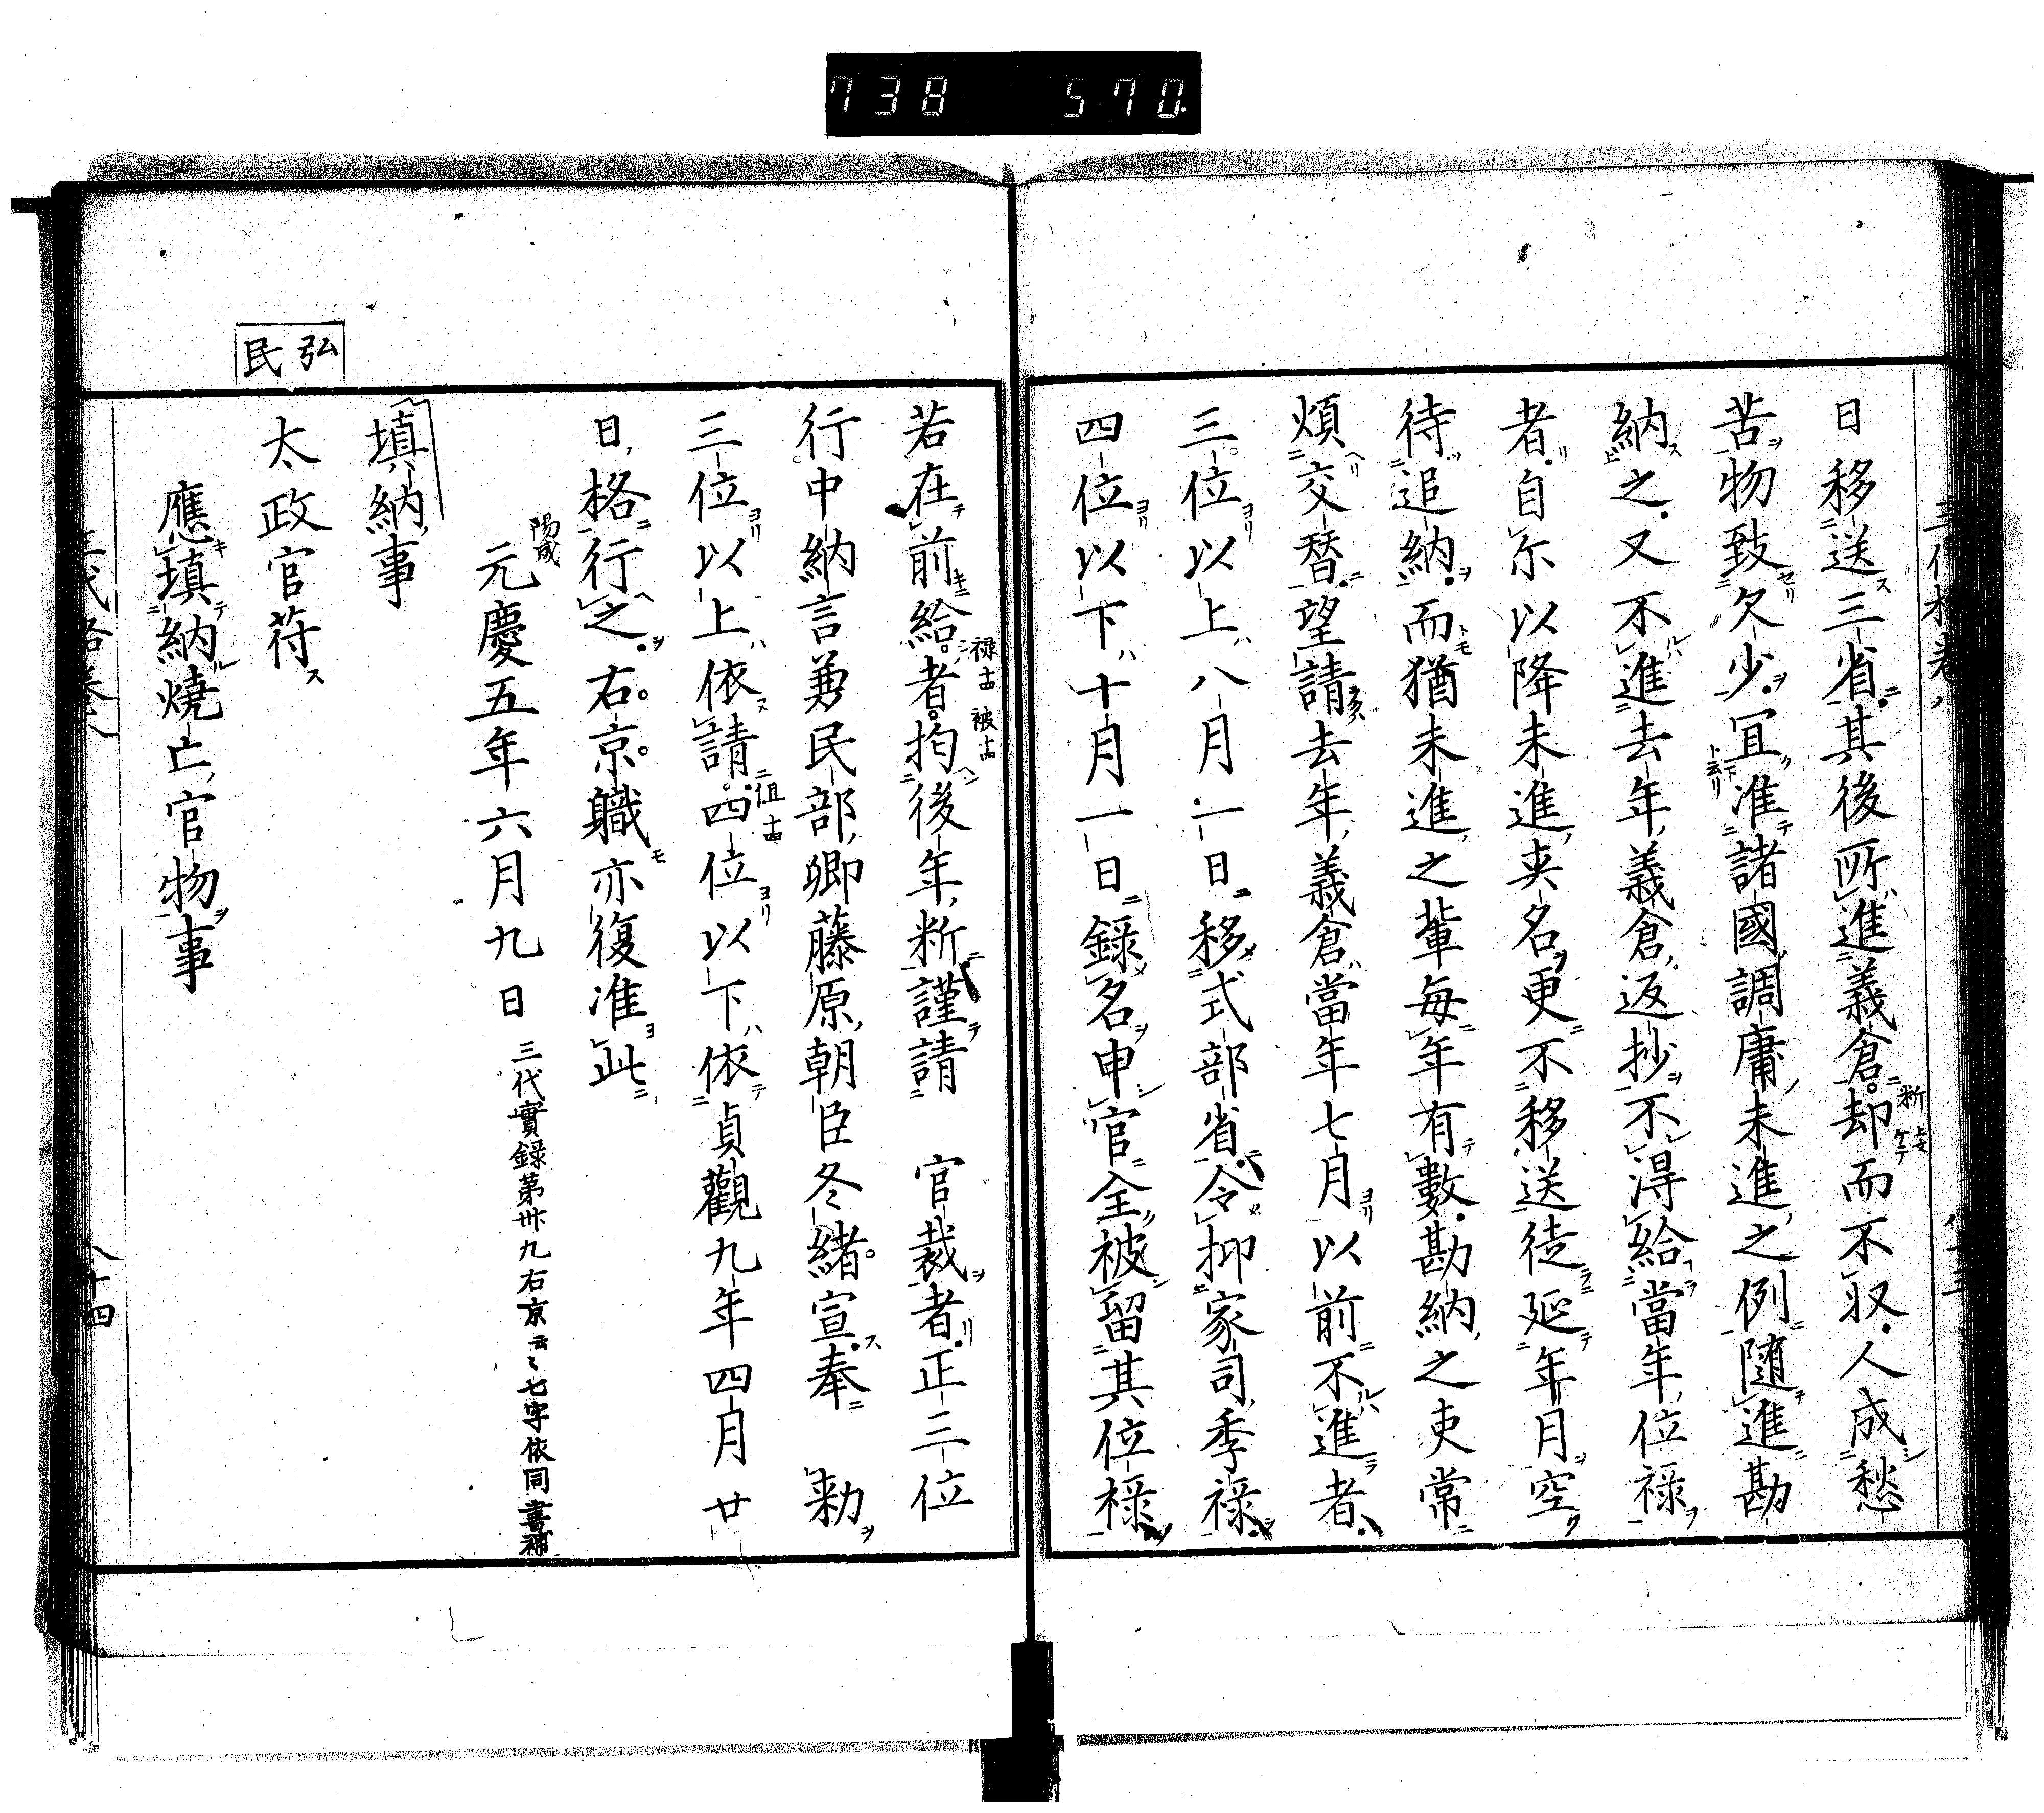 738 570
日移送三省其後所進義倉却而不収人成愁
苦物致欠少冝准諸國調庸未進之例随進勘
納之又不進去年義倉返抄不得給當年位禄
者自尓以降未進夾名更不移送徒延年月空
待追納而猶未進之輩毎年有數勘納之吏常
煩交替望請去年義倉當年七月以前不進者
三位以上八月一日移式部省令抑家司季禄
四位以下十月一日録名申官全被留其位禄
若在前給者拘後年断謹請 官裁者正三位
行中納言兼民部卿藤原朝臣冬緒宣奉 勅
三位以上依請四位以下依貞觀九年四月廿
日格行之右京職亦復准此
陽成
元慶五年六月九日 三代實録第卅九右京云〻七字依同書補
填納事
弘民
太政官苻
應填納燒亡官物事
三代格卷八
八十四